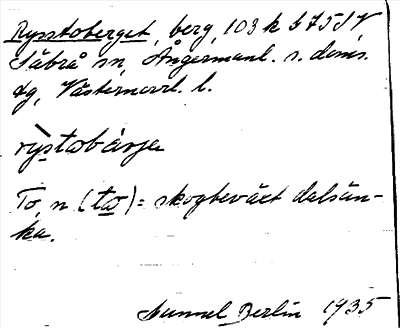 Rysstoberget, berg, 103 k S 75 SV
Säbrå sn, Ångermanl. s. doms.
dg, Västernorrl. l.
rỳstωbärjə
To, n (tω) = skogbeväxt dalsän-
ka.
Gunnel Berlin 1935